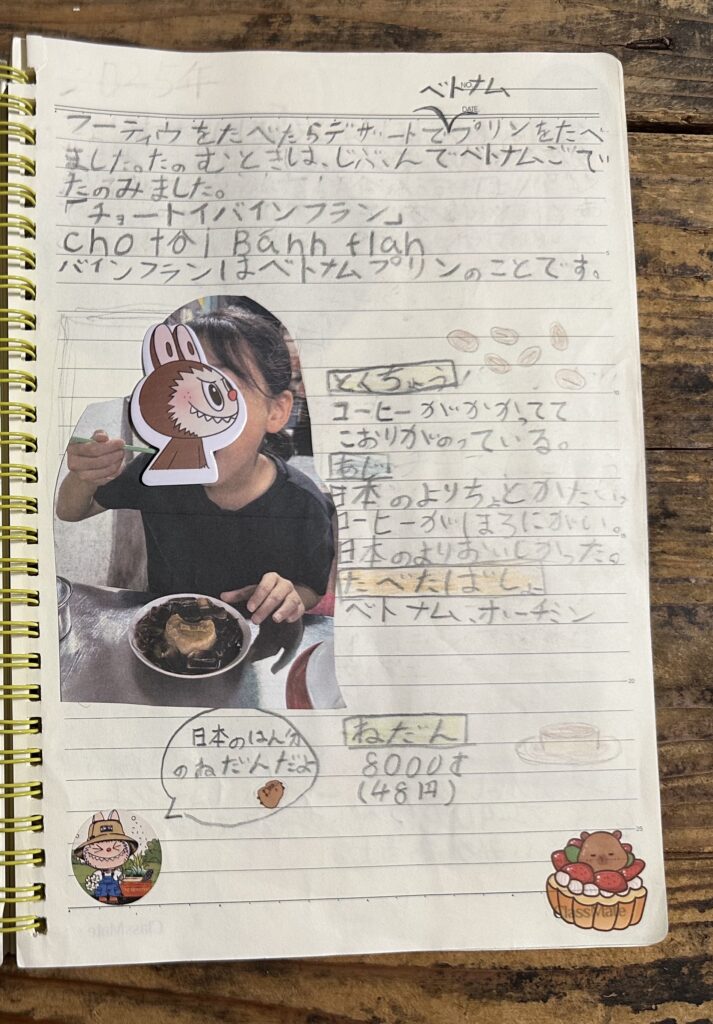 2025年
ベトナム
NO.
DATE
フーティウをたべたらデザートでプリンをたべ
ました。たのむときは、じぶんでベトナムごで
たのみました。
「チョートイバインフラン」
cho tôi Bánh flan
バインフランはベトナムプリンのことです。
とくちょう!
コーヒーがかかってて
こおりがのっている。
あじ
日本のよりちょとかたい。
コーヒーがほろにがい。
日本のよりおいしかった。
たべたばしょ
ベトナム、ホーチミン
日本のはん分
のねだんだよ
ねだん
8000す
(48円)
ClassMate